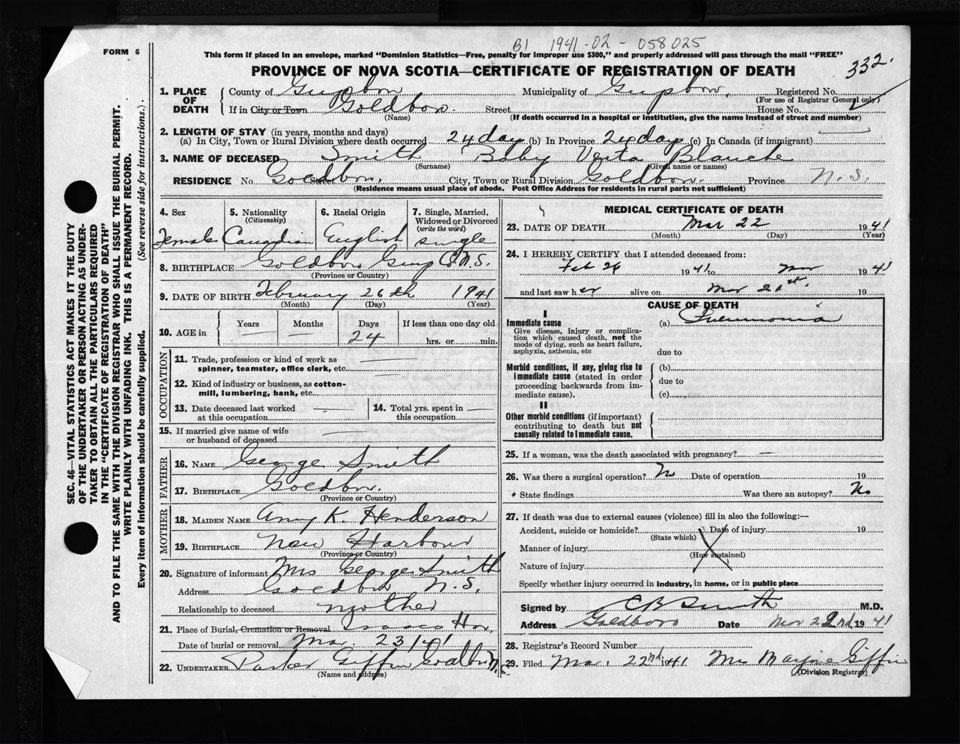 B1 1941-02-058025
332.
FORM 6
This form if placed in an envelope, marked "Dominion Statistics—Free, penalty for improper use $300," and properly addressed will pass through the mail "FREE"
PROVINCE OF NOVA SCOTIA—CERTIFICATE OF REGISTRATION OF DEATH
1. PLACE OF DEATH County of Municipality of Registered No.
(For use of Registrar General only)
If in City or Town Goldboro. Street House No.
(Name) (If death occurred in a hospital or institution, give the name instead of street and number)
2. LENGTH OF STAY (in years, months and days)
(a) In City, Town or Rural Division where death occurred 24 day (b) In Province 24 day (c) In Canada (if immigrant)
3. NAME OF DECEASED Smith Baby Blanche
(Surname) (Given name or names)
RESIDENCE No. Goldboro. Street City, Town or Rural Division Goldboro. Province N.S.
(Residence means usual place of abode. Post Office Address for residents in rural parts not sufficient)
4. Sex Female
5. Nationality (Citizenship) Canadian
6. Racial Origin English
7. Single, Married, Widowed or Divorced (write the word) single
8. BIRTHPLACE Goldboro N.S.
(Province or Country)
9. DATE OF BIRTH February 26th 1941
(Month) (Day) (Year)
10. AGE in Years — Months — Days 24 If less than one day old hrs. or min.
OCCUPATION
11. Trade, profession or kind of work as spinner, teamster, office clerk, etc.
12. Kind of industry or business, as cotton-mill, lumbering, bank, etc.
13. Date deceased last worked at this occupation —
14. Total yrs. spent in this occupation —
15. If married give name of wife or husband of deceased —
FATHER
16. NAME George Smith
17. BIRTHPLACE Goldboro.
(Province or Country)
MOTHER
18. MAIDEN NAME Amy K. Henderson
19. BIRTHPLACE New Harbour
(Province or Country)
20. Signature of informant Mrs George Smith
Address Goldboro N.S.
Relationship to deceased mother
21. Place of Burial, Cremation or Removal Isaacs Har.
Date of burial or removal Mar 23/41
22. UNDERTAKER Parker Giffin Goldboro
(Name and address)
MEDICAL CERTIFICATE OF DEATH
23. DATE OF DEATH Mar 22 1941
(Month) (Day) (Year)
24. I HEREBY CERTIFY that I attended deceased from:
Feb 26 1941 to Mar 1941
and last saw her alive on Mar 21st. 19
CAUSE OF DEATH
I
Immediate cause
Give disease, injury or complication which caused death, not the mode of dying, such as heart failure, asphyxia, asthenia, etc
(a) Pneumonia
due to
Morbid conditions, if any, giving rise to immediate cause (stated in order proceeding backwards from immediate cause).
(b)
due to
(c)
II
Other morbid conditions (if important) contributing to death but not causally related to immediate cause.
25. If a woman, was the death associated with pregnancy? —
26. Was there a surgical operation? No Date of operation 19
State findings Was there an autopsy? No
27. If death was due to external causes (violence) fill in also the following:—
Accident, suicide or homicide? Date of injury 19
(State which)
Manner of injury
(How sustained)
Nature of injury
Specify whether injury occurred in industry, in home, or in public place
Signed by C B Smith M.D.
Address Goldboro Date Mar 22nd 1941
28. Registrar's Record Number
29. Filed Mar. 22nd 1941 Mrs Giffin
(Division Registrar)
SEC. 46—VITAL STATISTICS ACT MAKES IT THE DUTY
OF THE UNDERTAKER OR PERSON ACTING AS UNDER-
TAKER TO OBTAIN ALL THE PARTICULARS REQUIRED
IN THE "CERTIFICATE OF REGISTRATION OF DEATH"
AND TO FILE THE SAME WITH THE DIVISION REGISTRAR WHO SHALL ISSUE THE BURIAL PERMIT.
WRITE PLAINLY WITH UNFADING INK. THIS IS A PERMANENT RECORD.
Every item of information should be carefully supplied. (See reverse side for instructions.)